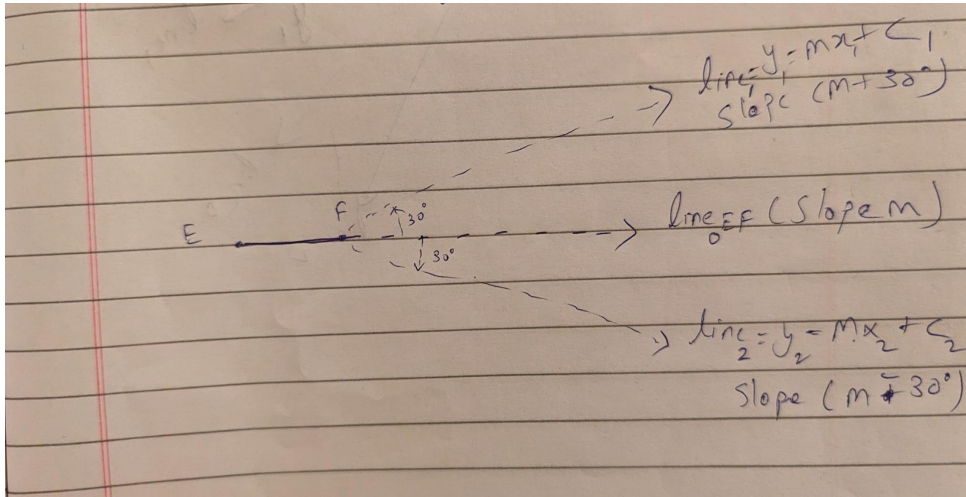 line₁ = y₁ = mx₁ + C₁
Slope (m + 30°)
F
30°
E
line₀ EF (Slope m)
30°
line₂ = y₂ = mx₂ + C₂
Slope (m - 30°)